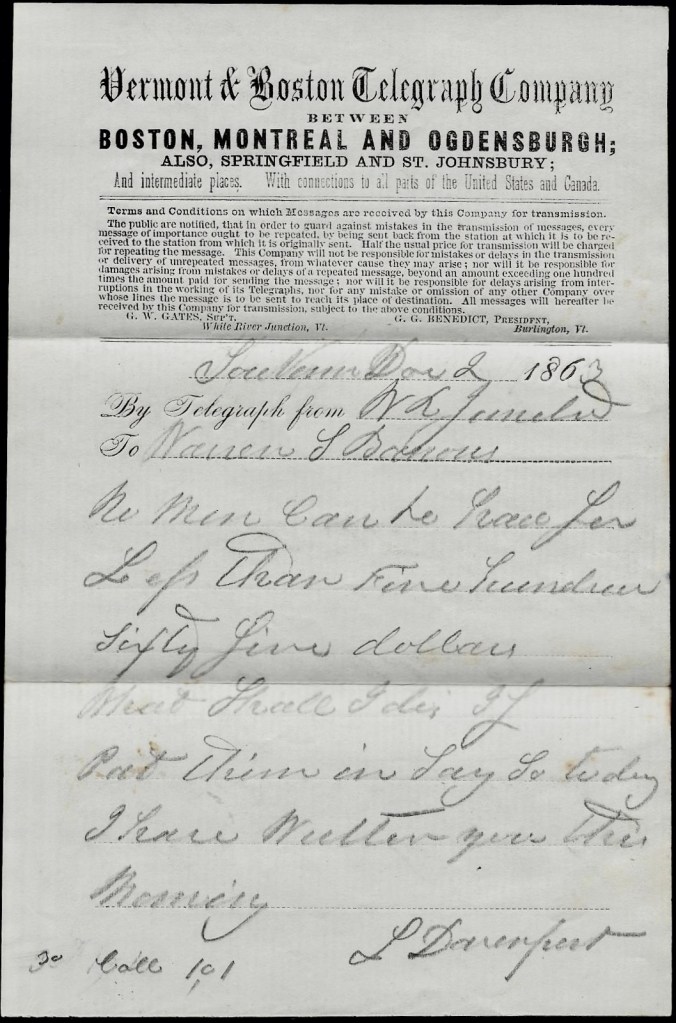 Vermont & Boston Telegraph Company
BETWEEN
BOSTON, MONTREAL AND OGDENSBURGH;
ALSO, SPRINGFIELD AND ST. JOHNSBURY;
And intermediate places. With connections to all parts of the United States and Canada.
Terms and Conditions on which Messages are received by this Company for transmission.
The public are notified, that in order to guard against mistakes in the transmission of messages, every
message of importance ought to be repeated, by being sent back from the station at which it is to be re-
ceived to the station from which it is originally sent. Half the usual price for transmission will be charged
for repeating the message. This Company will not be responsible for mistakes or delays in the transmission
or delivery of unrepeated messages, from whatever cause they may arise; nor will it be responsible for
damages arising from mistakes or delays of a repeated message, beyond an amount exceeding one hundred
times the amount paid for sending the message; nor will it be responsible for delays arising from inter-
ruptions in the working of its Telegraphs, nor for any mistake or omission of any other Company over
whose lines the message is to be sent to reach its place of destination. All messages will hereafter be
received by this Company for transmission, subject to the above conditions.
G. W. GATES, SUP'T. G. G. BENEDICT, PRESIDENT,
White River Junction, Vt. Burlington, Vt.
Dec 2 1863
By Telegraph from W R
To Warren S
No Men Can be had for
Less Than Five hundred
sixty five dollars
What Shall I do If
Put Them in Say So today
I have Written you this
Morning
L Davenport
30 Coll 101